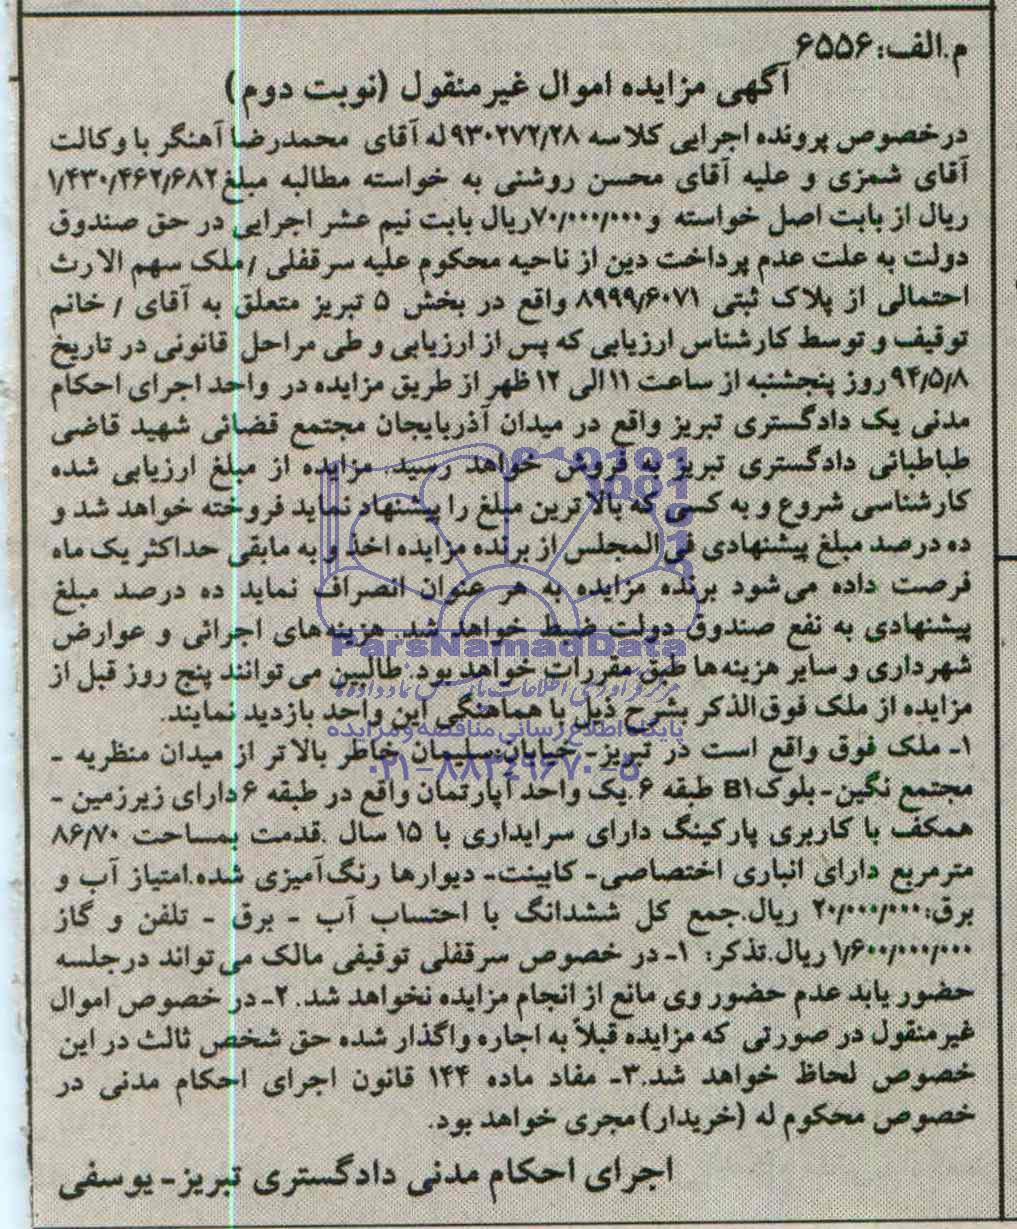 م.الف: ۶۵۵۶
آگهی مزایده اموال غیرمنقول (نوبت دوم)
درخصوص پرونده اجرایی کلاسه ۹۳۰۲۷۲/۲۸ له آقای محمدرضا آهنگر با وکالت
آقای شمزی و علیه آقای محسن روشنی به خواسته مطالبه مبلغ ۱/۴۳۰/۴۶۲/۶۸۲
ریال از بابت اصل خواسته و ۷۰/۰۰۰/۰۰۰ریال بابت نیم عشر اجرایی در حق صندوق
دولت به علت عدم پرداخت دین از ناحیه محکوم علیه سرقفلی /ملک سهم الارث
احتمالی از پلاک ثبتی ۸۹۹۹/۶۰۷۱ واقع در بخش ۵ تبریز متعلق به آقای / خانم
توقیف و توسط کارشناس ارزیابی که پس از ارزیابی و طی مراحل قانونی در تاریخ
۹۴/۵/۸ روز پنجشنبه از ساعت ۱۱ الی ۱۲ ظهر از طریق مزایده در واحد اجرای احکام
مدنی یک دادگستری تبریز واقع در میدان آذربایجان مجتمع قضائی شهید قاضی
طباطبائی دادگستری تبریز به فروش خواهد رسید. مزایده از مبلغ ارزیابی شده
کارشناسی شروع و به کسی که بالاترین مبلغ را پیشنهاد نماید فروخته خواهد شد و
ده درصد مبلغ پیشنهادی فی‌المجلس از برنده مزایده اخذ و به مابقی حداکثر یک ماه
فرصت داده می‌شود برنده مزایده به هر عنوان انصراف نماید ده درصد مبلغ
پیشنهادی به نفع صندوق دولت ضبط خواهد شد. هزینه‌های اجرائی و عوارض
شهرداری و سایر هزینه‌ها طبق مقررات خواهد بود. طالبین می‌توانند پنج روز قبل از
مزایده از ملک فوق‌الذکر بشرح ذیل با هماهنگی این واحد بازدید نمایند.
۱ـ ملک فوق واقع است در تبریز- خیابان سلیمان خاطر بالاتر از میدان منظریه -
مجتمع نگین- بلوک B۱ طبقه ۶ .یک واحد آپارتمان واقع در طبقه ۶ دارای زیرزمین -
همکف با کاربری پارکینگ دارای سرایداری با ۱۵ سال .قدمت بمساحت ۸۶/۷۰
مترمربع دارای انباری اختصاصی- کابینت- دیوارها رنگ‌آمیزی شده.امتیاز آب و
برق: ۲۰/۰۰۰/۰۰۰ ریال.جمع کل ششدانگ با احتساب آب - برق - تلفن و گاز
۱/۶۰۰/۰۰۰/۰۰۰ ریال.تذکر: ۱ـ در خصوص سرقفلی توقیفی مالک می‌تواند درجلسه
حضور یابد عدم حضور وی مانع از انجام مزایده نخواهد شد. ۲ـ در خصوص اموال
غیرمنقول در صورتی که مزایده قبلاً به اجاره واگذار شده حق شخص ثالث در این
خصوص لحاظ خواهد شد.۳ـ مفاد ماده ۱۴۴ قانون اجرای احکام مدنی در
خصوص محکوم له (خریدار) مجری خواهد بود.
اجرای احکام مدنی دادگستری تبریز- یوسفی
ParsNamadData
پایگاه اطلاع رسانی مناقصه و مزایده
۰۲۱-۸۸۳۴۹۶۷۰-۵